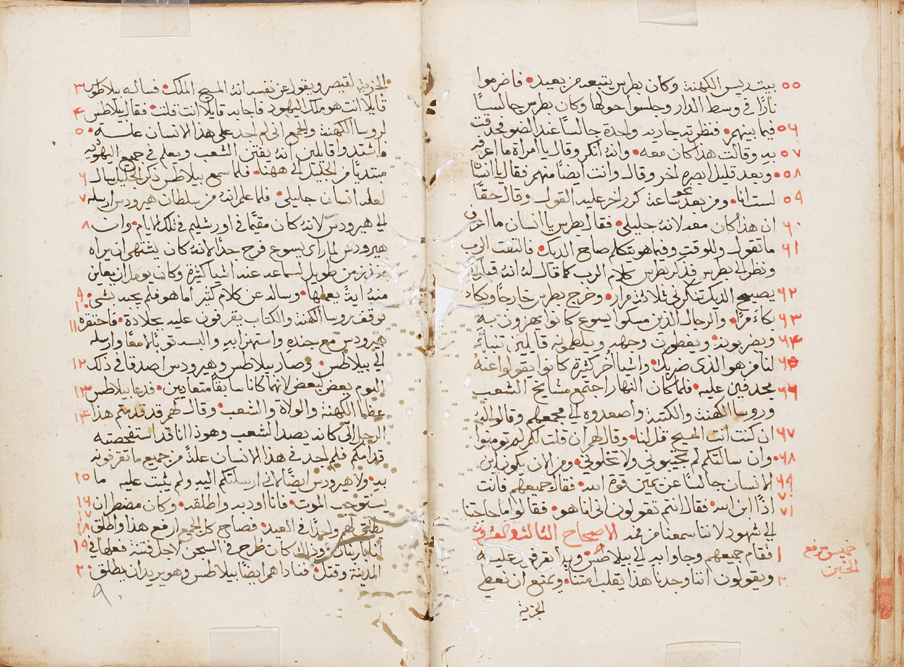 ٥٥ بيت ريس الكهنة وكان بطرس يتبعه من بعيد فاضرموا
نارًا في وسط الدار وجلسوا حولها وكان بطرس جالسًا
٥٦ فيما بينهم فنظرته جارية واحدة جالسًا عند الضو فحدقت
٥٧ به وقالت هذا كان معه وانه انكر وقال يا امراة ما اعرفه
٥٨ وبعد قليل ابصره اخر وقال وانت ايضًا منهم فقال يا انسانًا
٥٩ لست انا ومن بعد نحو ساعة كرر اخر عليه القول وقال حقًا
٦٠ ان هذا كان معه لانه جليلي فقال بطرس يا انسان ما اعرف
٦١ ما تقول وللوقت وفيما هو يتكلم صاح الديك فالتفت الرب
ونظر الى بطرس فذكر بطرس كلام الرب كما قال له انه قبل ان
٦٢ يصيح الديك تنكرني ثلاثة مرار وخرج بطرس خارجًا وبكاء
٦٣ بكاء مرًا والرجال الذين مسكوا يسوع كانوا يهزون به
٦٤ ويضربونه ويغطون وجهه ويلطمونه قايلين تنبا
٦٥ لنا من هو الذي ضربك واشيا اخر كثيرة كانوا يقولوا عنه
٦٦ مجدفين عليه فلما كان النهار اجتمع مشايخ الشعب
وروسا الكهنة والكتبة واصعدوه الى مجمعهم وقالوا له
٦٧ ان كنت انت المسيح قل لنا وقال لهم ان قلت لكم لم تومنوا
٦٨ وان سالتكم لم تجيبوني ولا تخلوني ومن الان يكون ابن
٦٩ الانسان جالسًا عن يمين قوة الله فقال جميعهم فانت
٧٠ ٧١ اذًا ابن الله فقال انتم تقولون اني انا هو فقالوا ما حاجتنا
الى شهود لاننا سمعنا من فمه الاصحاح الثالث والعشرون
١ فقام جميعهم وجاوا به الى بيلاطس وبدا يقرفون عليه
٢ ويقولون اننا وجدنا هذا يقلب امتنا ويمنع ان نعطي
الجزية
٣ الجزية لقيصر ويقول عن نفسه انه المسيح الملك فساله بيلاطس
٤ قايلًا انت هو ملك اليهود فاجابه قايلًا انت قلت فقال بيلاطس
٥ لروسا الكهنة والجمع اني لم اجد على هذا الانسان علة
فاشتدوا قايلين انه يفتن الشعب ويعلم في جميع اليهودية
٦ مبتديًا من الجليل الى ههنا فلما سمع بيلاطس ذكر الجليل سال
٧ لعله انسان جليلي فلما علم انه من سلطان هيرودس ارسله
٨ الى هيرودس لانه كان مقيمًا في اورشليم في تلك الايام وان
هيرودس لما راى يسوع فرح جدًا لانه كان يشتهي ان يراه
من زمن طويل لسماعه عنه اشيا كثيرة وكان يومل ان يعاين
٩ منه اية يعملها وساله عن كلام كثير اما هو فلم يجيبه بشي
١٠ ١١ فوقف روسا الكهنة والكتاب يقرفون عليه بجلادة فاحتقره
هيرودس مع جنده واستهزا به والبسه ثوبًا لامعًا وارسله
١٢ الى بيلاطس وصار بيلاطس وهيرودس اصدقا في ذلك
١٣ اليوم بعض لبعض لانهما كانا سابقًا متعاديين فدعا بيلاطس
١٤ عظما الكهنة والولاة والشعب وقال لهم قد قدمتم هذا
الرجل الي كانه يصد الشعب وهوذا انا قد استفحصته
قدامكم فلم اجد في هذا الانسان علة من جميع ما تقرفونه
١٥ به ولا هيرودس ايضًا لاني ارسلتكم اليه ولم يثبت عليه ما
١٦ ١٧ يستوجب الموت فانا اودبه واطلقه وكان مضطران
١٨ يطلق لهم واحدًا في العيد فصاح كل الجمع ارفع هذا واطلق
١٩ لنا باربان وذلك كان طرح في السجن لاجل فتنة فعلها في
٢٠ المدينة وقتل فناداهم ايضًا بيلاطس وهو يريد ان يطلق